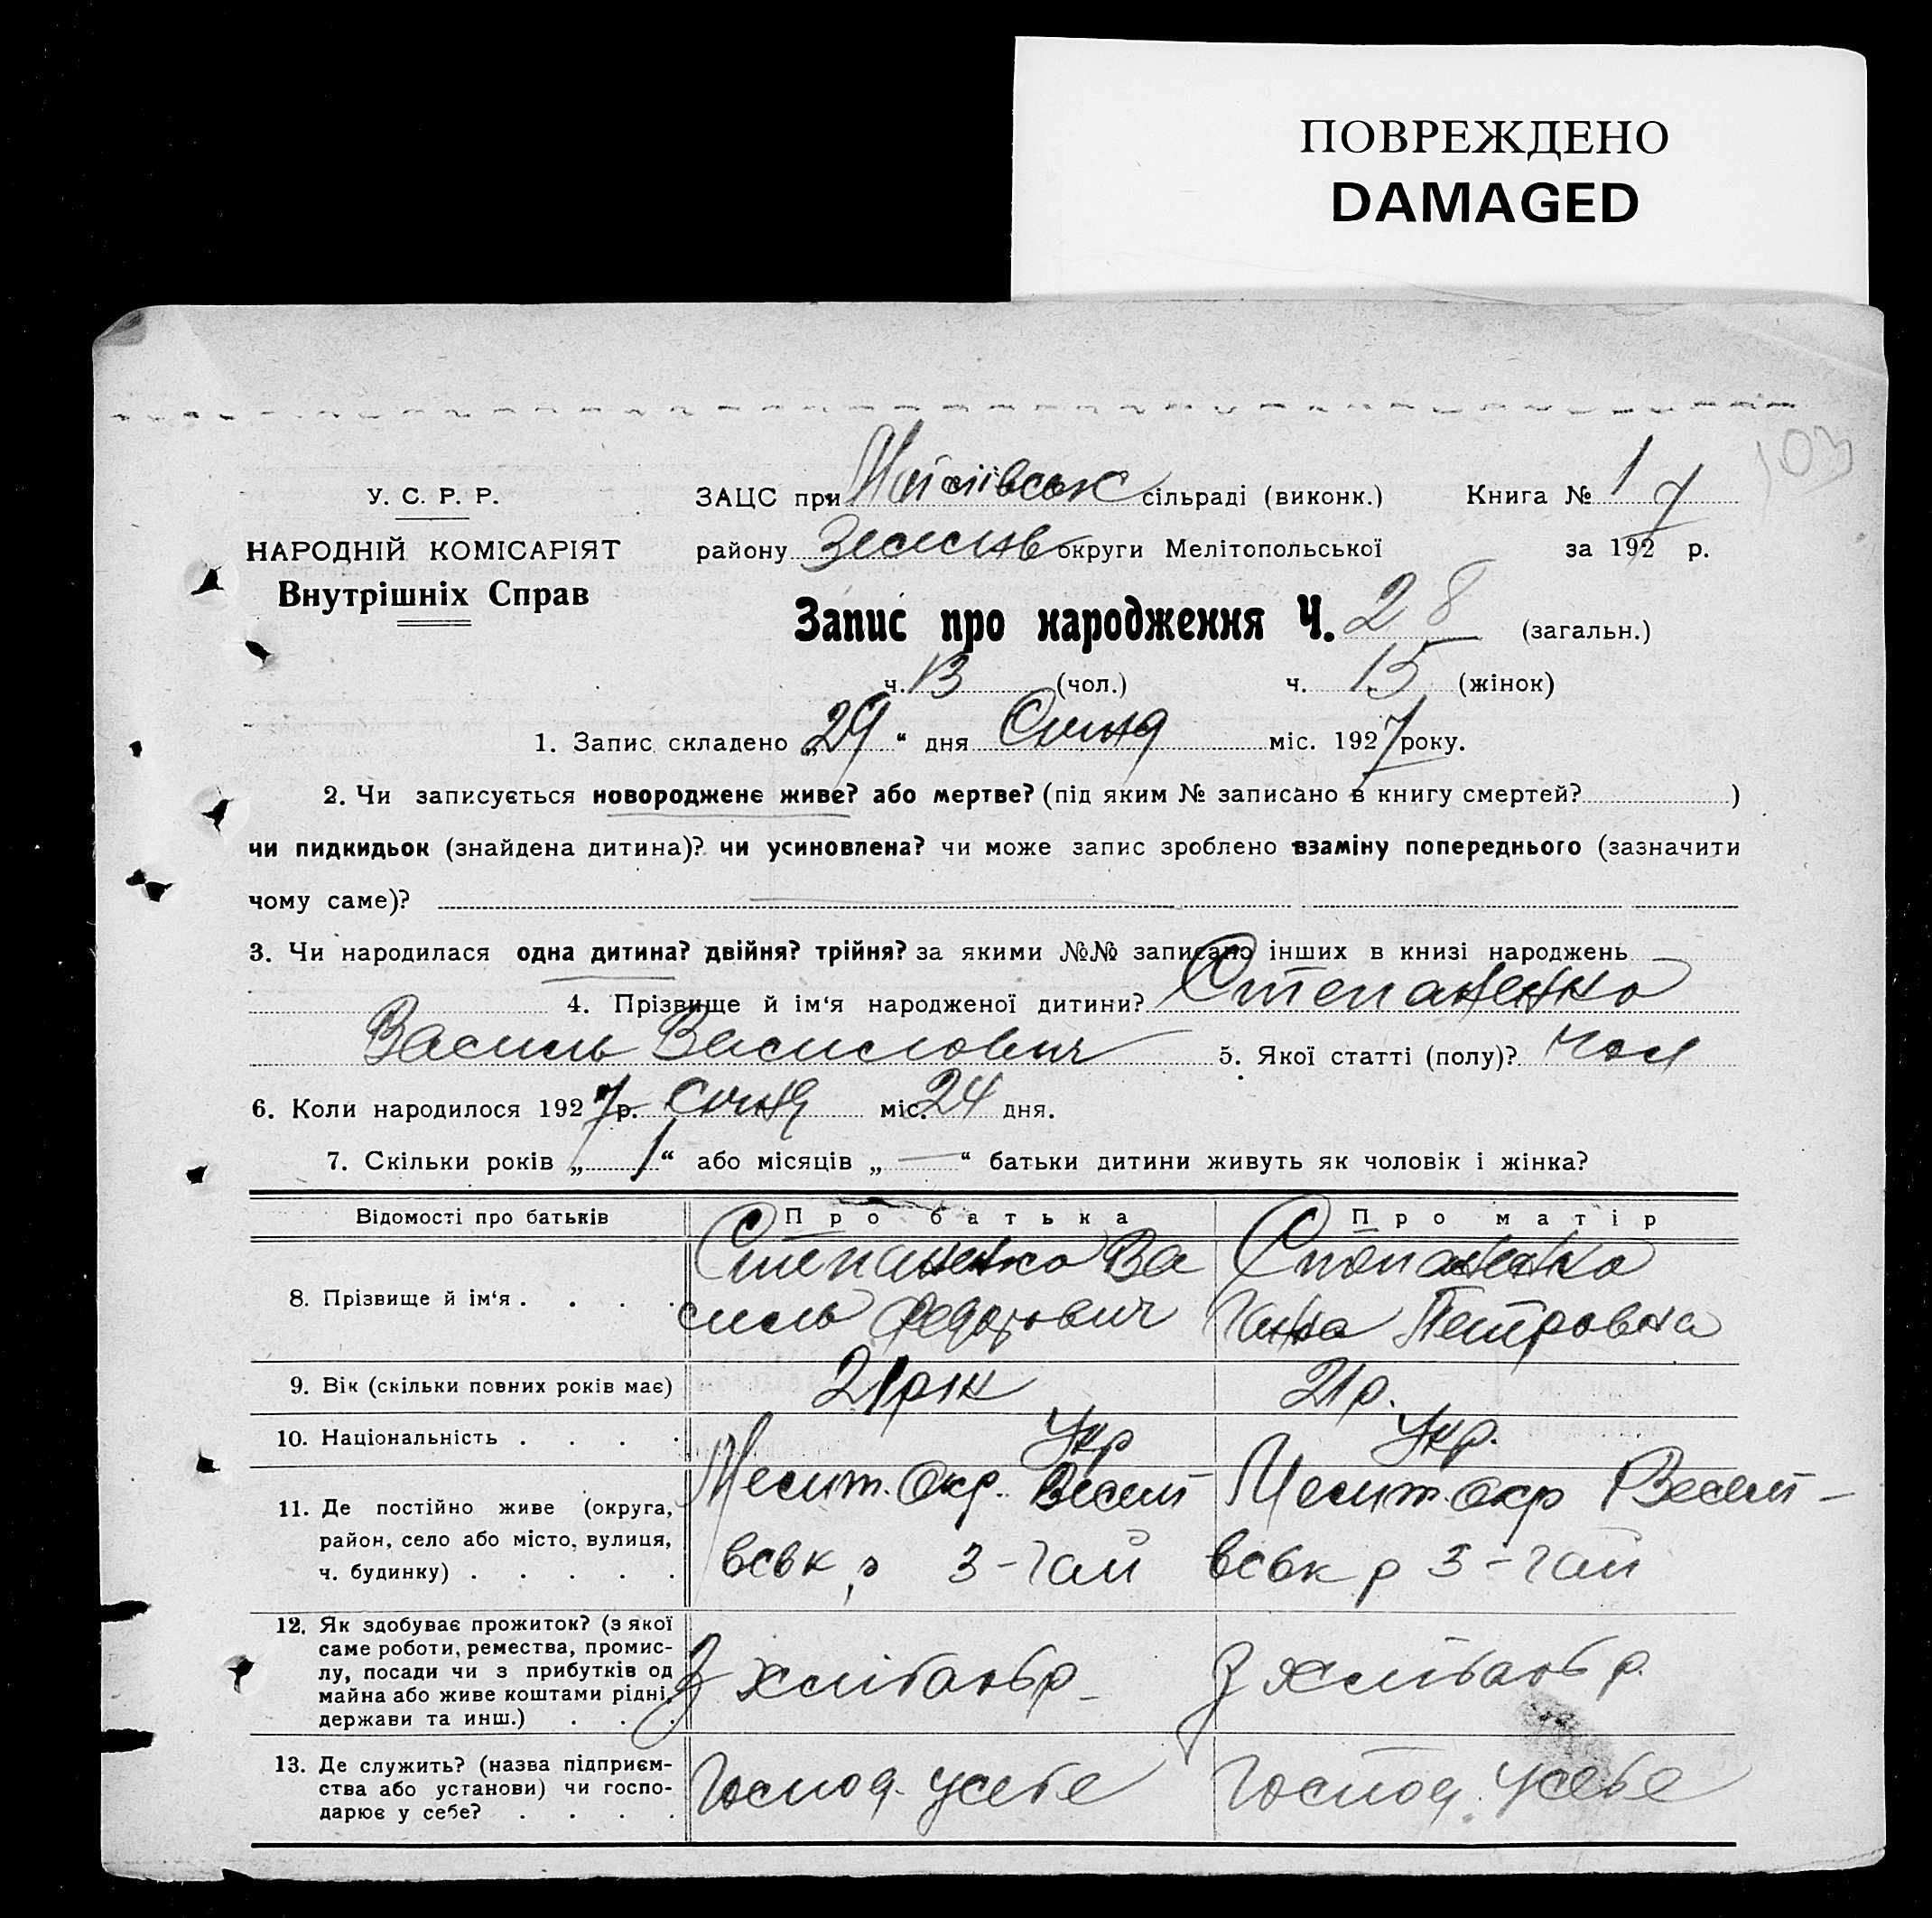 ПОВРЕЖДЕНО
DAMAGED
103
У. С. Р. Р.
НАРОДНІЙ КОМІСАРІЯТ
Внутрішніх Справ
ЗАЦС при сільраді (виконк.) Книга № 1
району округи Мелітопольської за 1927 р.
Запис про народження Ч. 28 (загальн.)
ч. 13 (чол.) ч. 15 (жінок)
1. Запис складено „29“ дня Січня міс. 1927 року.
2. Чи записується новороджене живе? або мертве? (під яким № записано в книгу смертей? )
чи пидкидьок (знайдена дитина)? чи усиновлена? чи може запис зроблено взаміну попереднього (зазначити
чому саме)?
3. Чи народилася одна дитина? двійня? трійня? за якими №№ записано інших в книзі народжень
4. Прізвище й ім‘я народженої дитини? Степаненко
Василь Василович 5. Якої статті (полу)? Чол
6. Коли народилося 1927 р. Січня міс. 24 дня.
7. Скільки років „1“ або місяців „—“ батьки дитини живуть як чоловік і жінка?
Відомості про батьків Про батька Про матір
8. Прізвище й ім‘я . . . . Степаненко Ва Степаненко
силь Федорович Ганна Петровна
9. Вік (скільки повних років має) 21 рік 21 р.
10. Національність . . . . Укр Укр.
11. Де постійно живе (округа, Меліт. Окр. Веселі Меліт. Окр Веселі-
район, село або місто, вулиця,
ч. будинку) . . . . . вськ р 3-Гай вськ р 3-Гай
12. Як здобуває прожиток? (з якої
саме роботи, ремества, промис-
лу, посади чи з прибутків од
майна або живе коштами рідні, З хлібароб р З хлібароб р.
держави та инш.) . . .
13. Де служить? (назва підприєм-
ства або установи) чи госпо- Господ. усебе Господ. усебе
дарює у себе? . . . .